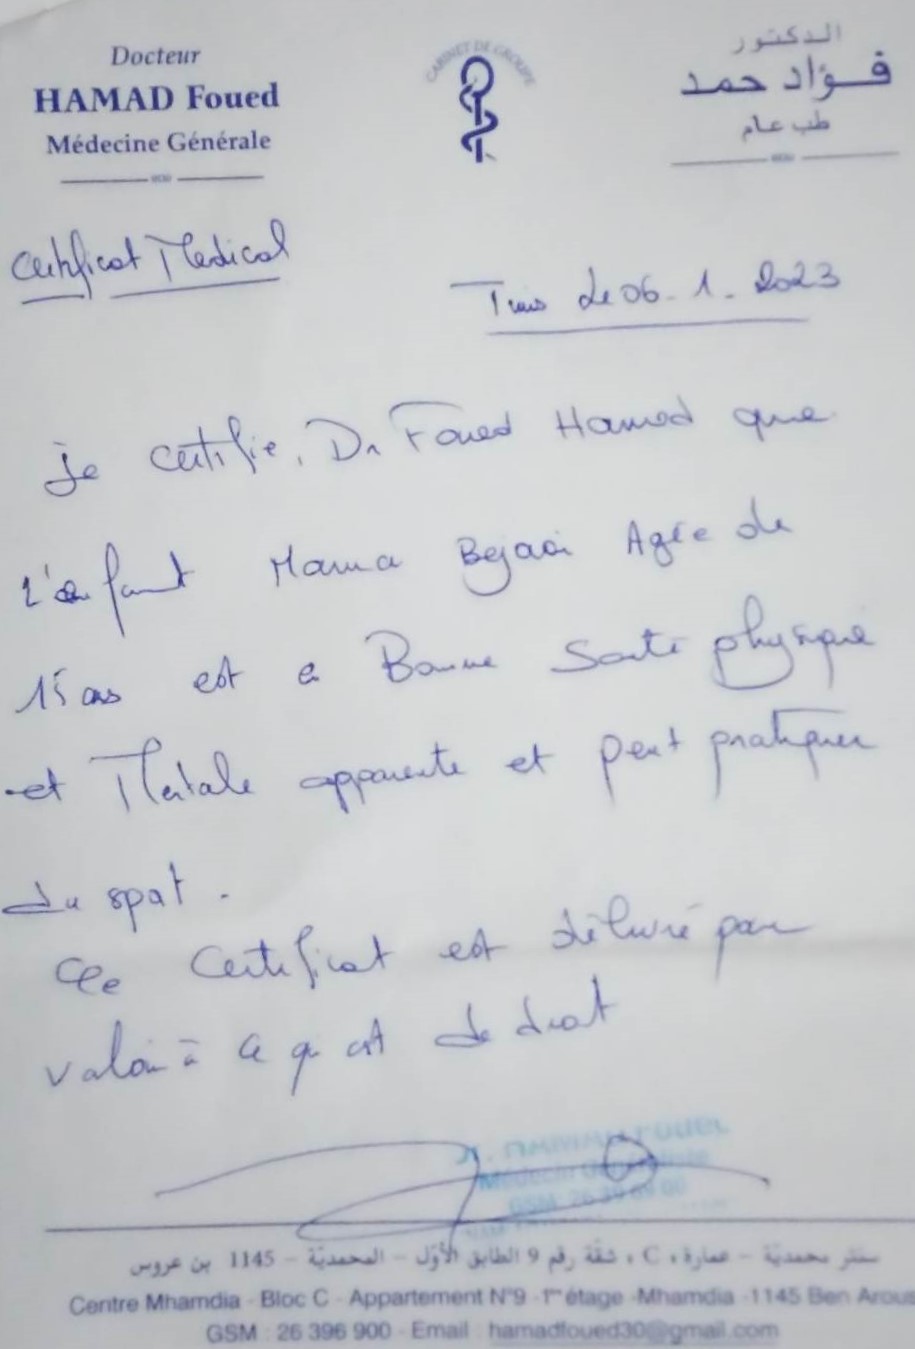 Docteur
HAMAD Foued
Médecine Générale
CABINET DE GROUPE
الدكتور
فؤاد حمد
طب عام
Certificat Medical
Tunis le 06-1-2023
Je certifie, Dr Foued Hamed que
l'enfant Marwa Bejaoi Agée de
15 ans est en Bonne Santé physique
et Mentale apparente et peut pratiquer
du sport.
Ce Certificat est délivré pour
valoir à ce q est de droit
HAMAD FOUED
Médecin Généraliste
GSM 26 39 69 00
سنتر محمدية - عمارة C، شقة رقم 9 الطابق الأوّل - المحمديّة - 1145 بن عروس
Centre Mhamdia - Bloc C - Appartement N°9 - 1er étage -Mhamdia -1145 Ben Arous
GSM : 26 396 900 - Email : hamadfoued30@gmail.com